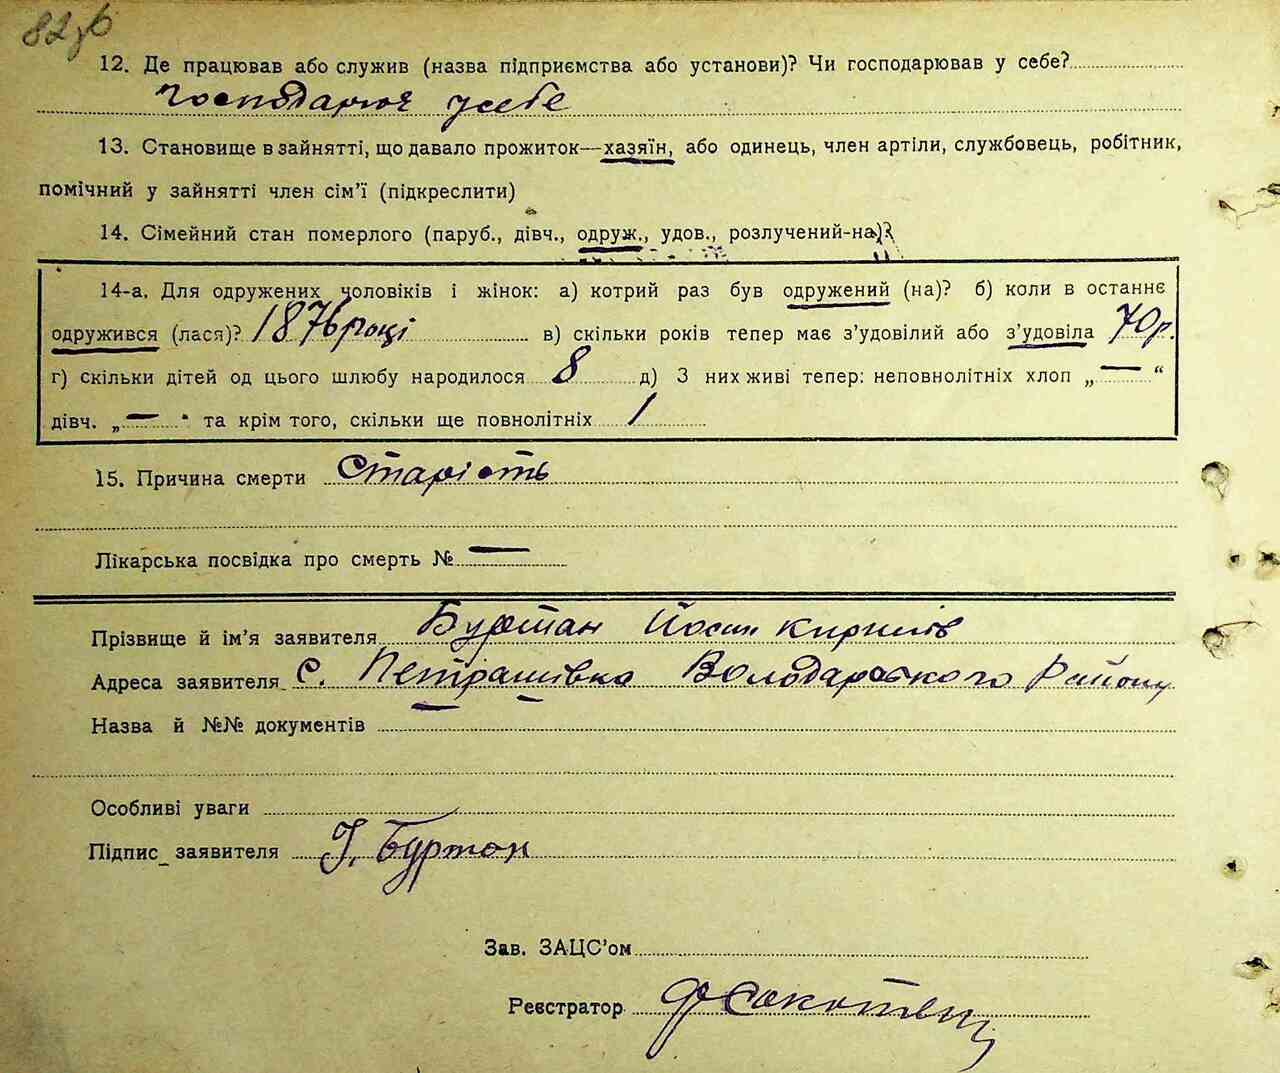 82зв
12. Де працював або служив (назва підприємства або установи)? Чи господарював у себе?
господарює усебе
13. Становище в зайнятті, що давало прожиток—хазяїн, або одинець, член артіли, службовець, робітник,
помічний у зайнятті член сім'ї (підкреслити)
14. Сімейний стан померлого (паруб., дівч., одруж., удов., розлучений-на)?
14-а. Для одружених чоловіків і жінок: а) котрий раз був одружений (на)? б) коли в останнє
одружився (лася)? 1876 році в) скільки років тепер має з'удовілий або з'удовіла 70 р.
г) скільки дітей од цього шлюбу народилося 8 д) З них живі тепер: неповнолітніх хлоп „—“
дівч. „—“ та крім того, скільки ще повнолітніх 1
15. Причина смерти Старість
Лікарська посвідка про смерть № —
Прізвище й ім'я заявителя Буртан Йосип Кирилів
Адреса заявителя с. Петрашівка Володарського Району
Назва й №№ документів — —
Особливі уваги
Підпис заявителя Й. Буртан
Зав. ЗАЦС'ом
Реєстратор